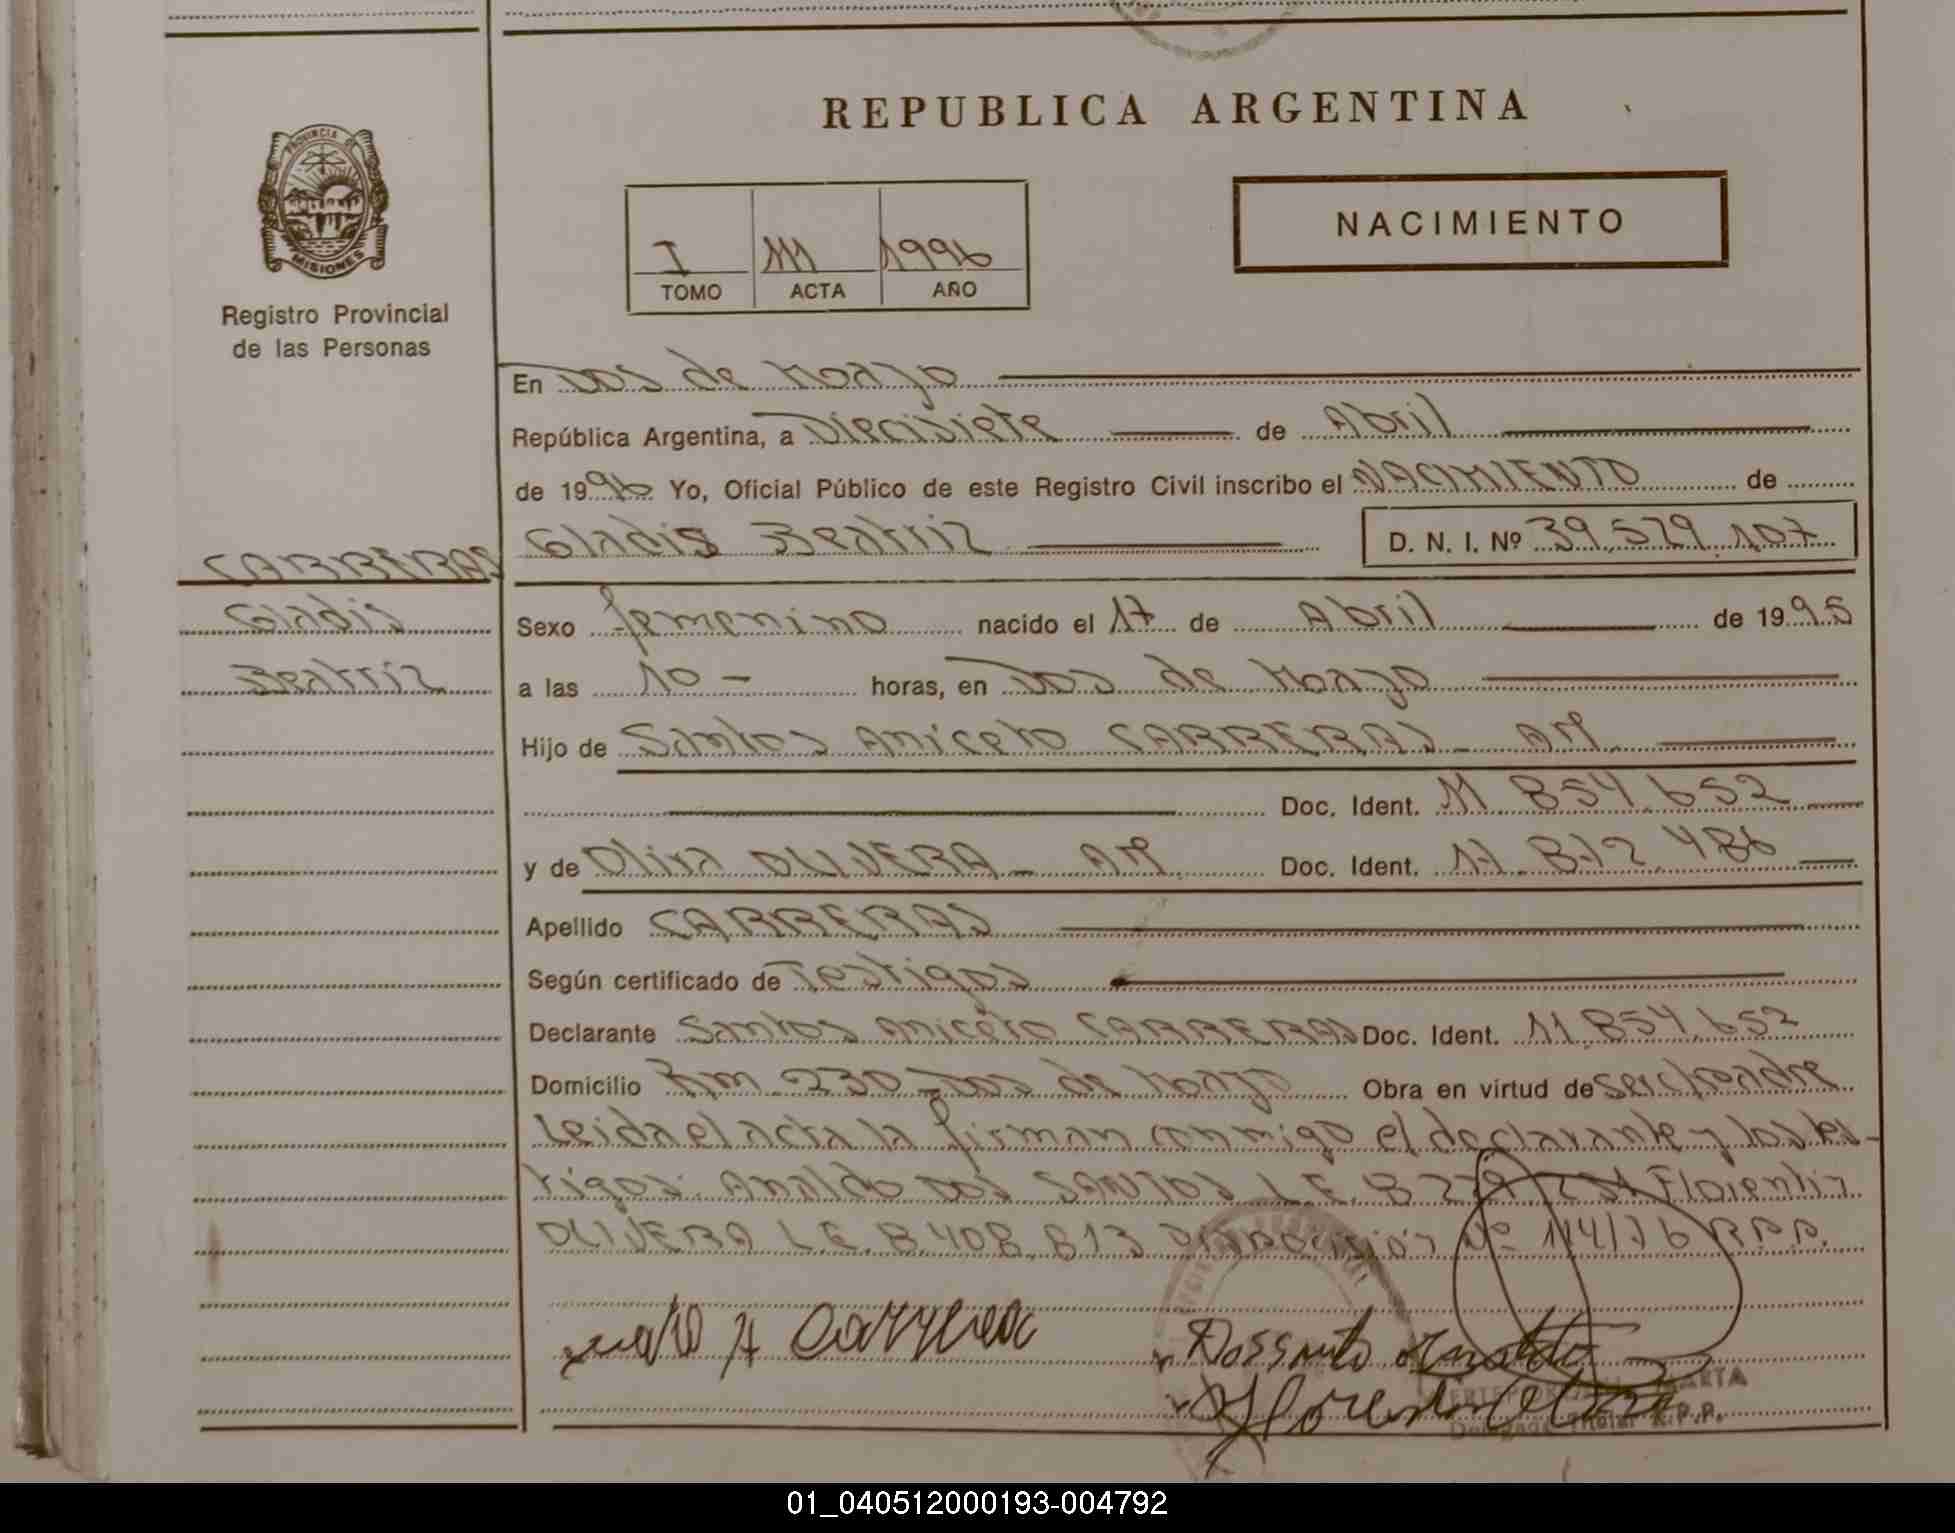 REPUBLICA ARGENTINA
PROVINCIA DE
MISIONES
Registro Provincial
de las Personas
NACIMIENTO
I 111 1996
TOMO ACTA AÑO
En Dos de Mayo
República Argentina, a Diecisiete de Abril
de 1996 Yo, Oficial Público de este Registro Civil inscribo el NACIMIENTO de
CARRERAS
Gladis Beatriz D. N. I. Nº 39.529.107
Gladis
Beatriz
Sexo femenino nacido el 17 de Abril de 1995
a las 10 - horas, en Dos de Mayo
Hijo de Santos Aniceto CARRERAS - AM.
Doc. Ident. 11.854.652
y de Oliva OLIVERA - AM. Doc. Ident. 17.812.486
Apellido CARRERAS
Según certificado de Testigos
Declarante Santos Aniceto CARRERAS Doc. Ident. 11.854.652
Domicilio Km 230 - Dos de Mayo Obra en virtud de ser padre
Leida el acta la firman conmigo el declarante y los tes-
tigos: Analdo DOS SANTOS L.E. 8.279. Florentin
OLIVERA L.E. 8.408.813 Disposición Nº 114/76 R.P.P.
A Carrera
Dossanto
MARTA
Delegado Titular R.P.P.
01_040512000193-004792